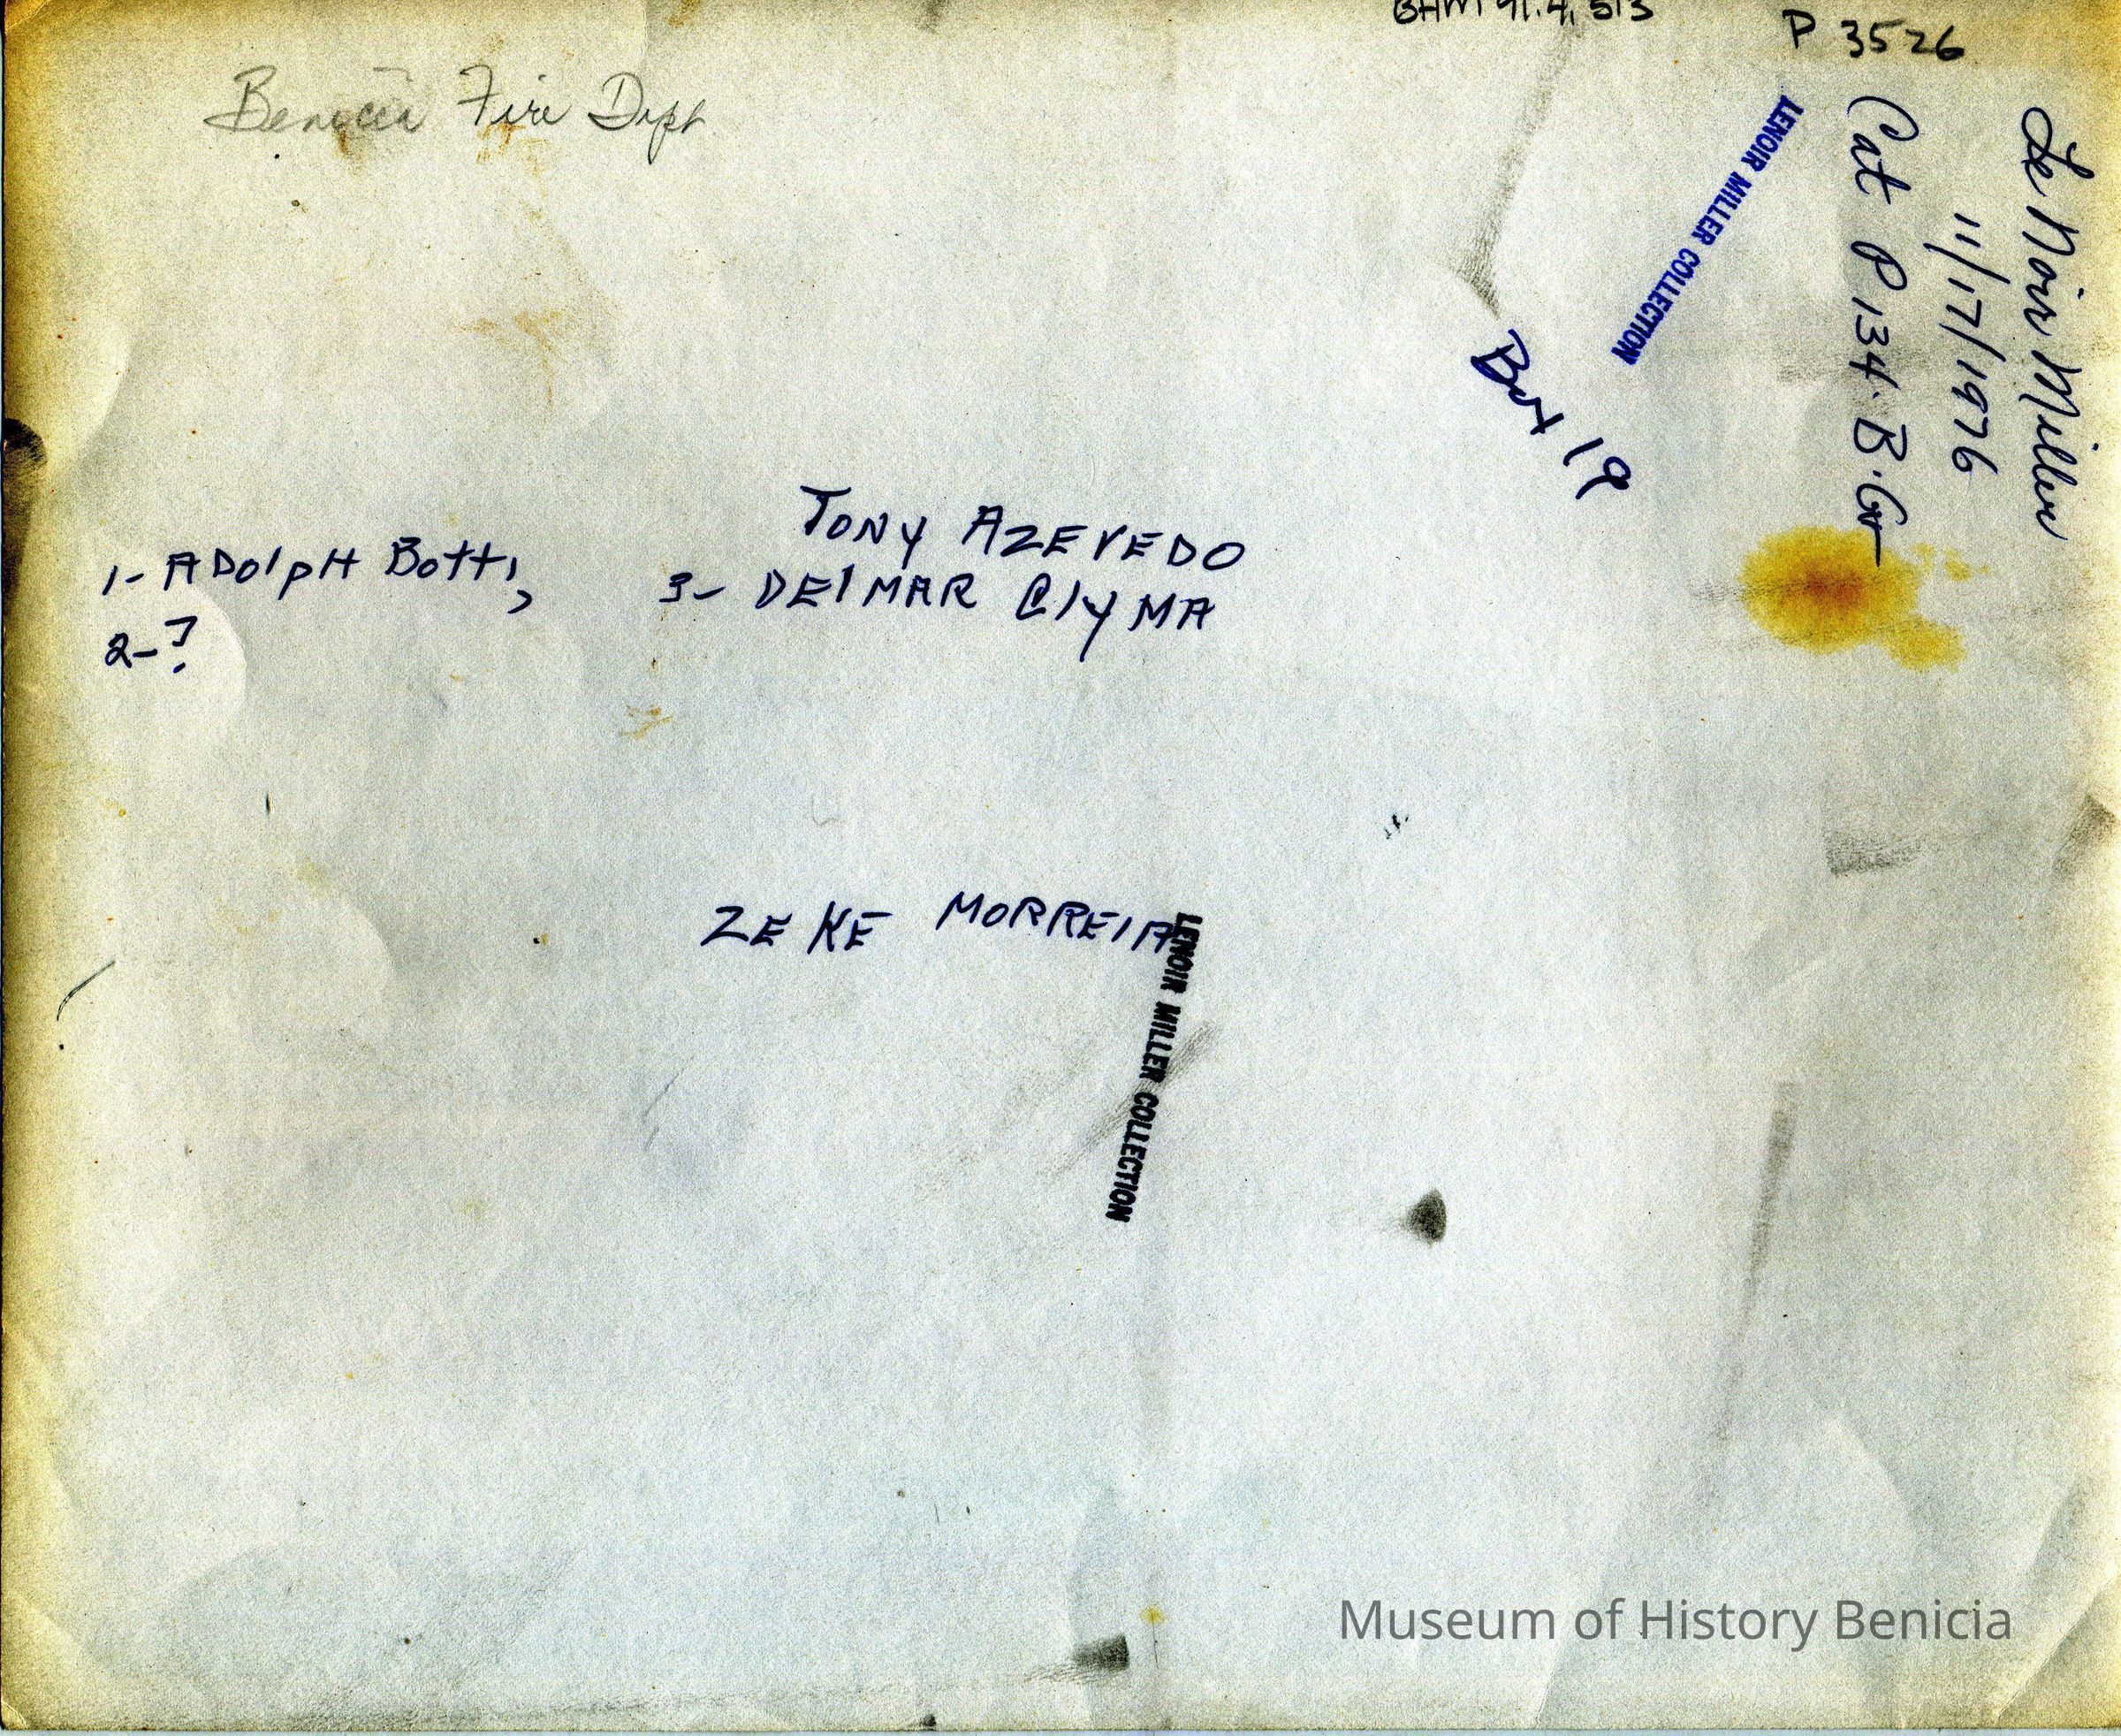 BHM 91.4.513
P 3526
Benicia Fire Dept
LENOIR MILLER COLLECTION
LeNoir Miller
11/17/1976
Cat P134.B.Gr
Box 19
TONY AZEVEDO
1- ADolpH Botti,
3- DElMAR ClyMA
2-?
ZEKE MORREIA
LENOIR MILLER COLLECTION
Museum of History Benicia